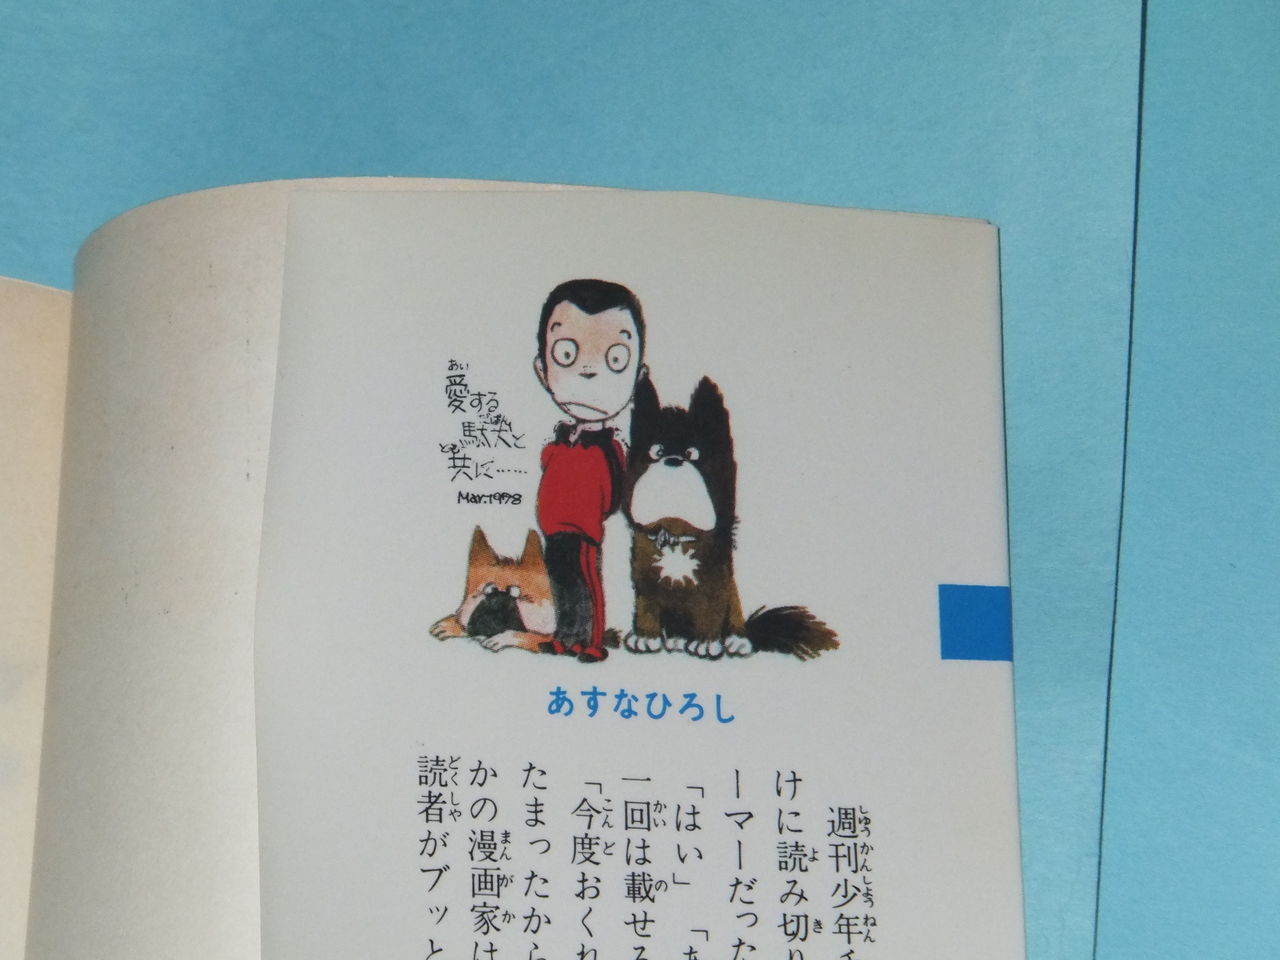 愛する
駄犬と
共に……
Mar.1978
あすなひろし
週刊少年
けに読み切り
ーマーだった
「はい」「
一回は載せろ
「今度おくれ
たまったから
かの漫画家は
読者がブッと